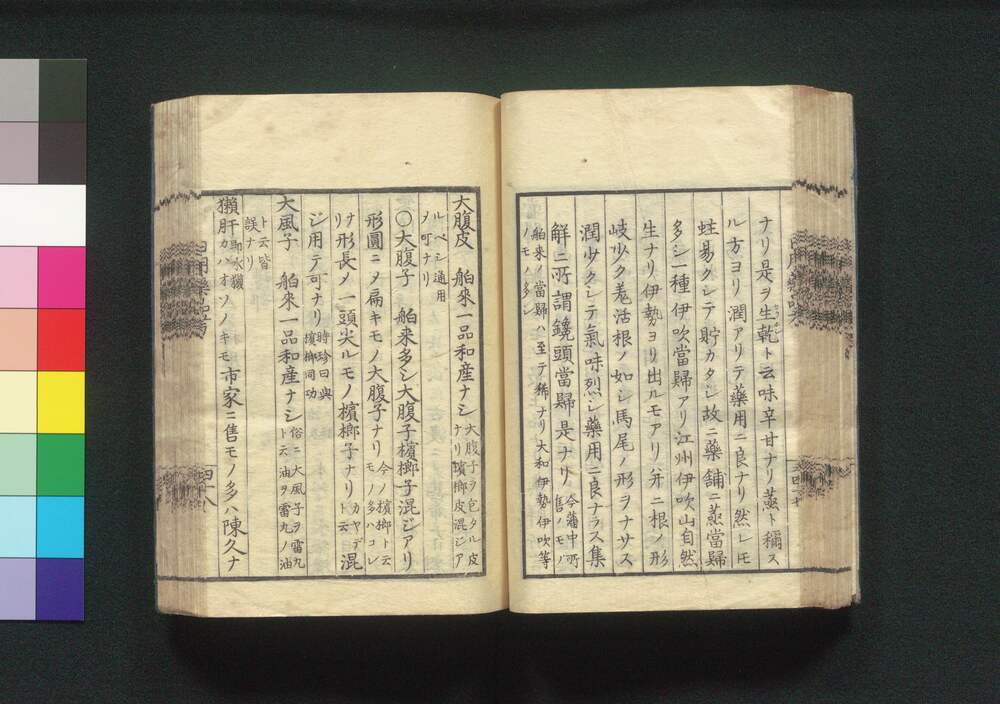 ナリ是ヲ生乾ト云味辛甘ナリ蒸ト稱ス
ル方ヨリ潤アリテ藥用ニ良ナリ然レ𪜈
蛀易クシテ貯カタシ故ニ藥舗ニ蒸當歸
多シ一種伊吹當歸アリ江州伊吹山自然
生ナリ伊勢ヨリ出ルモアリ并ニ根ノ形
岐少ク羗活根ノ如シ馬尾ノ形ヲナサス
潤少クシテ氣味烈シ藥用ニ良ナラス集
解ニ所謂鏡頭當歸是ナリ今藩中所售ノモノ
舶来ノ當歸ハ至テ稀ナリ大和伊勢伊吹等
ノモノ多シ
大腹皮 舶來一品和産ナシ大腹子ヲ包タル皮ナリ檳榔皮混ジア
ルベシ通用
メ可ナリ
〇大腹子 舶来多シ大腹子檳榔子混ジアリ
形圓ニメ扁キモノ大腹子ナリ今ノ檳榔ト云モノ多ハコレ
ナリ
形長メ一頭尖ルモノ檳榔子ナリカヤデト云混
ジ用テ可ナリ時珍曰與檳榔同功
大風子 舶來一品和産ナシ俗ニ大風子ヲ雷丸ト云油ヲ雷丸ノ油
ト云皆
誤ナリ
獺肝即水獺カハオソノキモ市家ニ售モノ多ハ陳久ナ
四十八